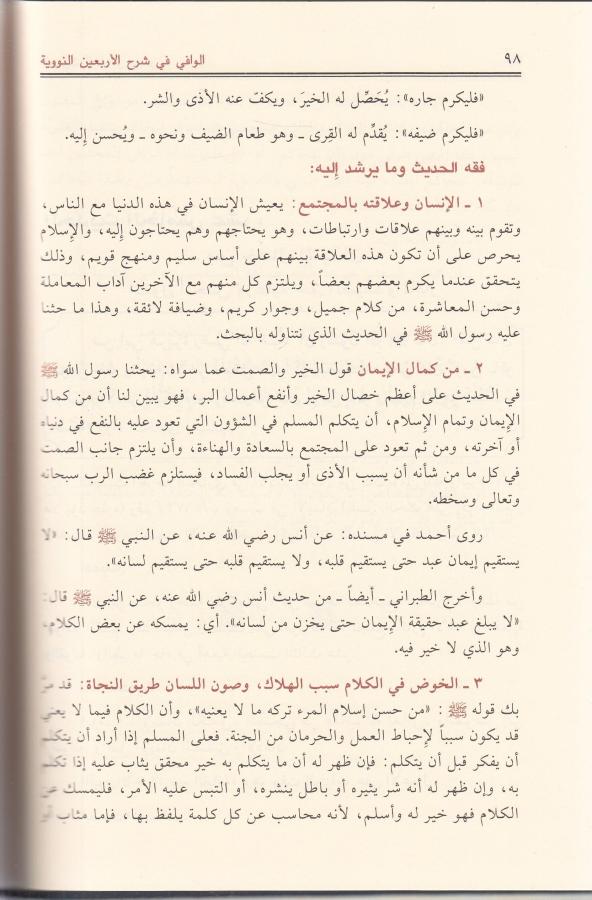 ٩٨ الوافي في شرح الأربعين النووية
«فليكرم جاره»: يُحَصِّل له الخيرَ، ويكفّ عنه الأذى والشر.
«فليكرم ضيفه»: يُقدِّم له القِرى ـ وهو طعام الضيف ونحوه ـ ويُحسن إليه.
فقه الحديث وما يرشد إليه:
١ ـ الإنسان وعلاقته بالمجتمع: يعيش الإنسان في هذه الدنيا مع الناس،
وتقوم بينه وبينهم علاقات وارتباطات، وهو يحتاجهم وهم يحتاجون إليه، والإسلام
يحرص على أن تكون هذه العلاقة بينهم على أساس سليم ومنهج قويم، وذلك
يتحقق عندما يكرم بعضهم بعضاً، ويلتزم كل منهم مع الآخرين آداب المعاملة
وحسن المعاشرة، من كلام جميل، وجوار كريم، وضيافة لائقة، وهذا ما حثنا
عليه رسول الله ﷺ في الحديث الذي نتناوله بالبحث.
٢ ـ من كمال الإيمان قول الخير والصمت عما سواه: يحثنا رسول الله ﷺ
في الحديث على أعظم خصال الخير وأنفع أعمال البر، فهو يبين لنا أن من كمال
الإيمان وتمام الإسلام، أن يتكلم المسلم في الشؤون التي تعود عليه بالنفع في دنياه
أو آخرته، ومن ثم تعود على المجتمع بالسعادة والهناءة، وأن يلتزم جانب الصمت
في كل ما من شأنه أن يسبب الأذى أو يجلب الفساد، فيستلزم غضب الرب سبحانه
وتعالى وسخطه.
روى أحمد في مسنده: عن أنس رضي الله عنه، عن النبي ﷺ قال: «لا
يستقيم إيمان عبد حتى يستقيم قلبه، ولا يستقيم قلبه حتى يستقيم لسانه».
وأخرج الطبراني ـ أيضاً ـ من حديث أنس رضي الله عنه، عن النبي ﷺ قال:
«لا يبلغ عبد حقيقة الإيمان حتى يخزن من لسانه». أي: يمسكه عن بعض الكلام،
وهو الذي لا خير فيه.
٣ ـ الخوض في الكلام سبب الهلاك، وصون اللسان طريق النجاة: قد مرَّ
بك قوله ﷺ : «من حسن إسلام المرء تركه ما لا يعنيه»، وأن الكلام فيما لا يعني
قد يكون سبباً لإحباط العمل والحرمان من الجنة. فعلى المسلم إذا أراد أن يتكلم
أن يفكر قبل أن يتكلم: فإن ظهر له أن ما يتكلم به خير محقق يثاب عليه إذا تكلم
به، وإن ظهر له أنه شر يثيره أو باطل ينشره، أو التبس عليه الأمر، فليمسك عن
الكلام فهو خير له وأسلم، لأنه محاسب عن كل كلمة يلفظ بها، فإما مثاب أو